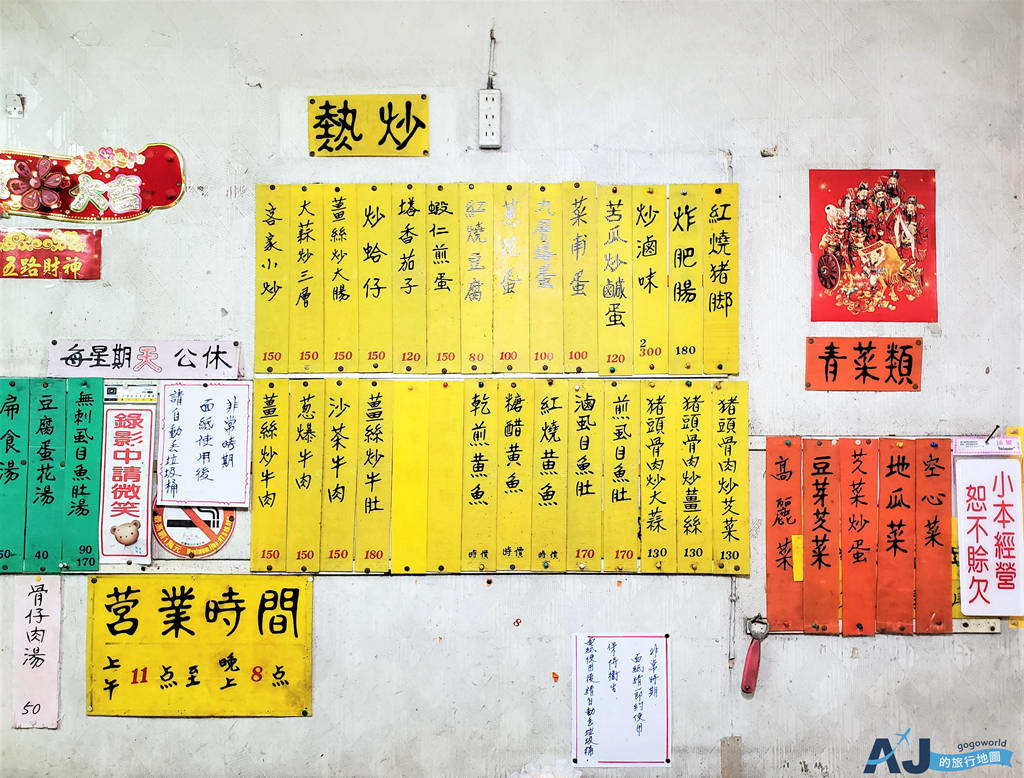 熱炒
大吉
五路財神
紅燒猪脚
炸肥腸 180
炒滷味 2 300
苦瓜炒鹹蛋 120
菜甫蛋 100
九層塔蛋 100
蔥花蛋 100
紅燒豆腐 80
蝦仁煎蛋 150
塔香茄子 120
炒蛤仔 150
薑絲炒大腸 150
大蒜炒三層 150
客家小炒 150
青菜類
每星期天公休
猪頭骨肉炒芡菜 130
猪頭骨肉炒薑絲 130
猪頭骨肉炒大蒜 130
煎虱目魚肚 170
滷虱目魚肚 170
紅燒黄魚 時價
糖醋黄魚 時價
乾煎黄魚 時價
薑絲炒牛肚 180
沙茶牛肉 150
葱爆牛肉 150
薑絲炒牛肉 150
非常時期
面紙使用後
請自動丢垃圾桶
錄影中請微笑
無刺虱目魚肚湯 90 170
豆腐蛋花湯 40
扁食湯 50
空心菜
地瓜菜
芡菜炒蛋
豆芽芡菜
高麗菜
小本經營
恕不賒欠
骨仔肉湯 50
营業時間
上午11点至晚上8点
8
非常時期
面紙請節約使用
保持衛生
面紙使用後請自動丢垃圾桶
AJ
gogoworld
的旅行地圖